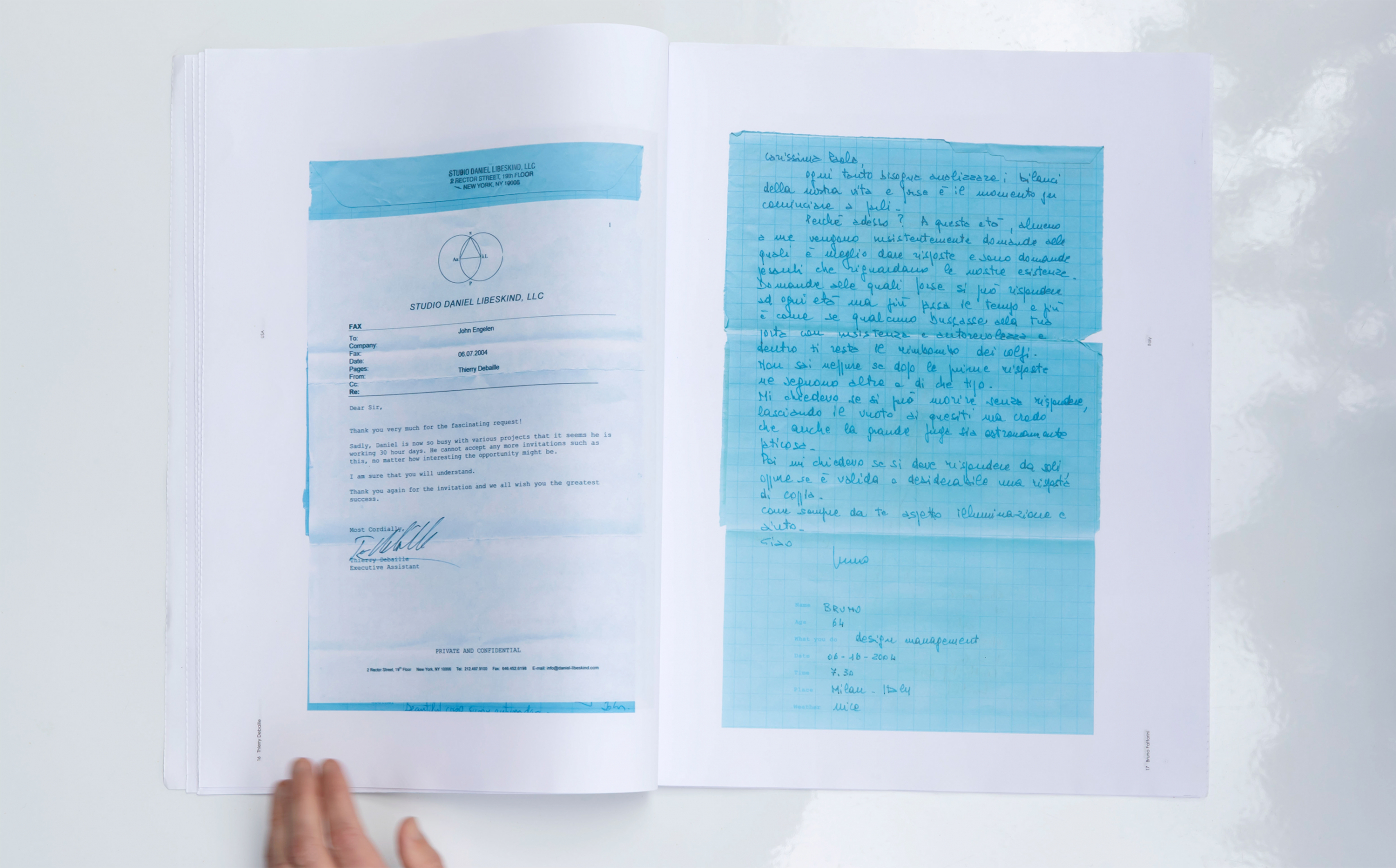 STUDIO DANIEL LIBESKIND, LLC
2 RECTOR STREET, 19th FLOOR
NEW YORK, NY 10006
1
STUDIO DANIEL LIBESKIND, LLC
FAX
To: John Engelen
Company:
Fax:
Date: 06.07.2004
Pages:
From: Thierry Debaille
Cc:
Re:
Dear Sir,
Thank you very much for the fascinating request!
Sadly, Daniel is now so busy with various projects that it seems he is
working 30 hour days. He cannot accept any more invitations such as
this, no matter how interesting the opportunity might be.
I am sure that you will understand.
Thank you again for the invitation and we all wish you the greatest
success.
Most Cordially,
Thierry Debaille
Executive Assistant
PRIVATE AND CONFIDENTIAL
2 Rector Street, 19th Floor New York, NY 10006 Tel: Fax: E-mail: info@daniel-libeskind.com
John.
16 Thierry Debaille
Carissimo Paolo,
ogni tanto bisogna analizzare i bilanci
della nostra vita e forse è il momento per
cominciare a farli.
Perché adesso? A questa età, almeno
a me vengono insistentemente domande alle
quali è meglio dare risposte e sono domande
pesanti che riguardano le nostre esistenze.
Domande alle quali forse si può rispondere
ad ogni età ma più passa il tempo e più
è come se qualcuno bussasse alla tua
porta con insistenza e autorevolezza e
dentro ti resta il rimbombo dei colpi.
Non sai neppure se dopo le prime risposte
ne seguono altre e di che tipo.
Mi chiedevo se si può morire senza rispondere,
lasciando il vuoto ai quesiti ma credo
che anche la grande fuga sia estremamente
faticosa.
Poi mi chiedevo se si deve rispondere da soli
oppure se è valida o desiderabile una risposta
di coppia.
Come sempre da te aspetto illuminazione e
aiuto.
Ciao
Bruno
Name BRUNO
Age 64
What you do design management
Date 06-18-2004
Time 7.30
Place Milan - Italy
Weather nice
17 Bruno